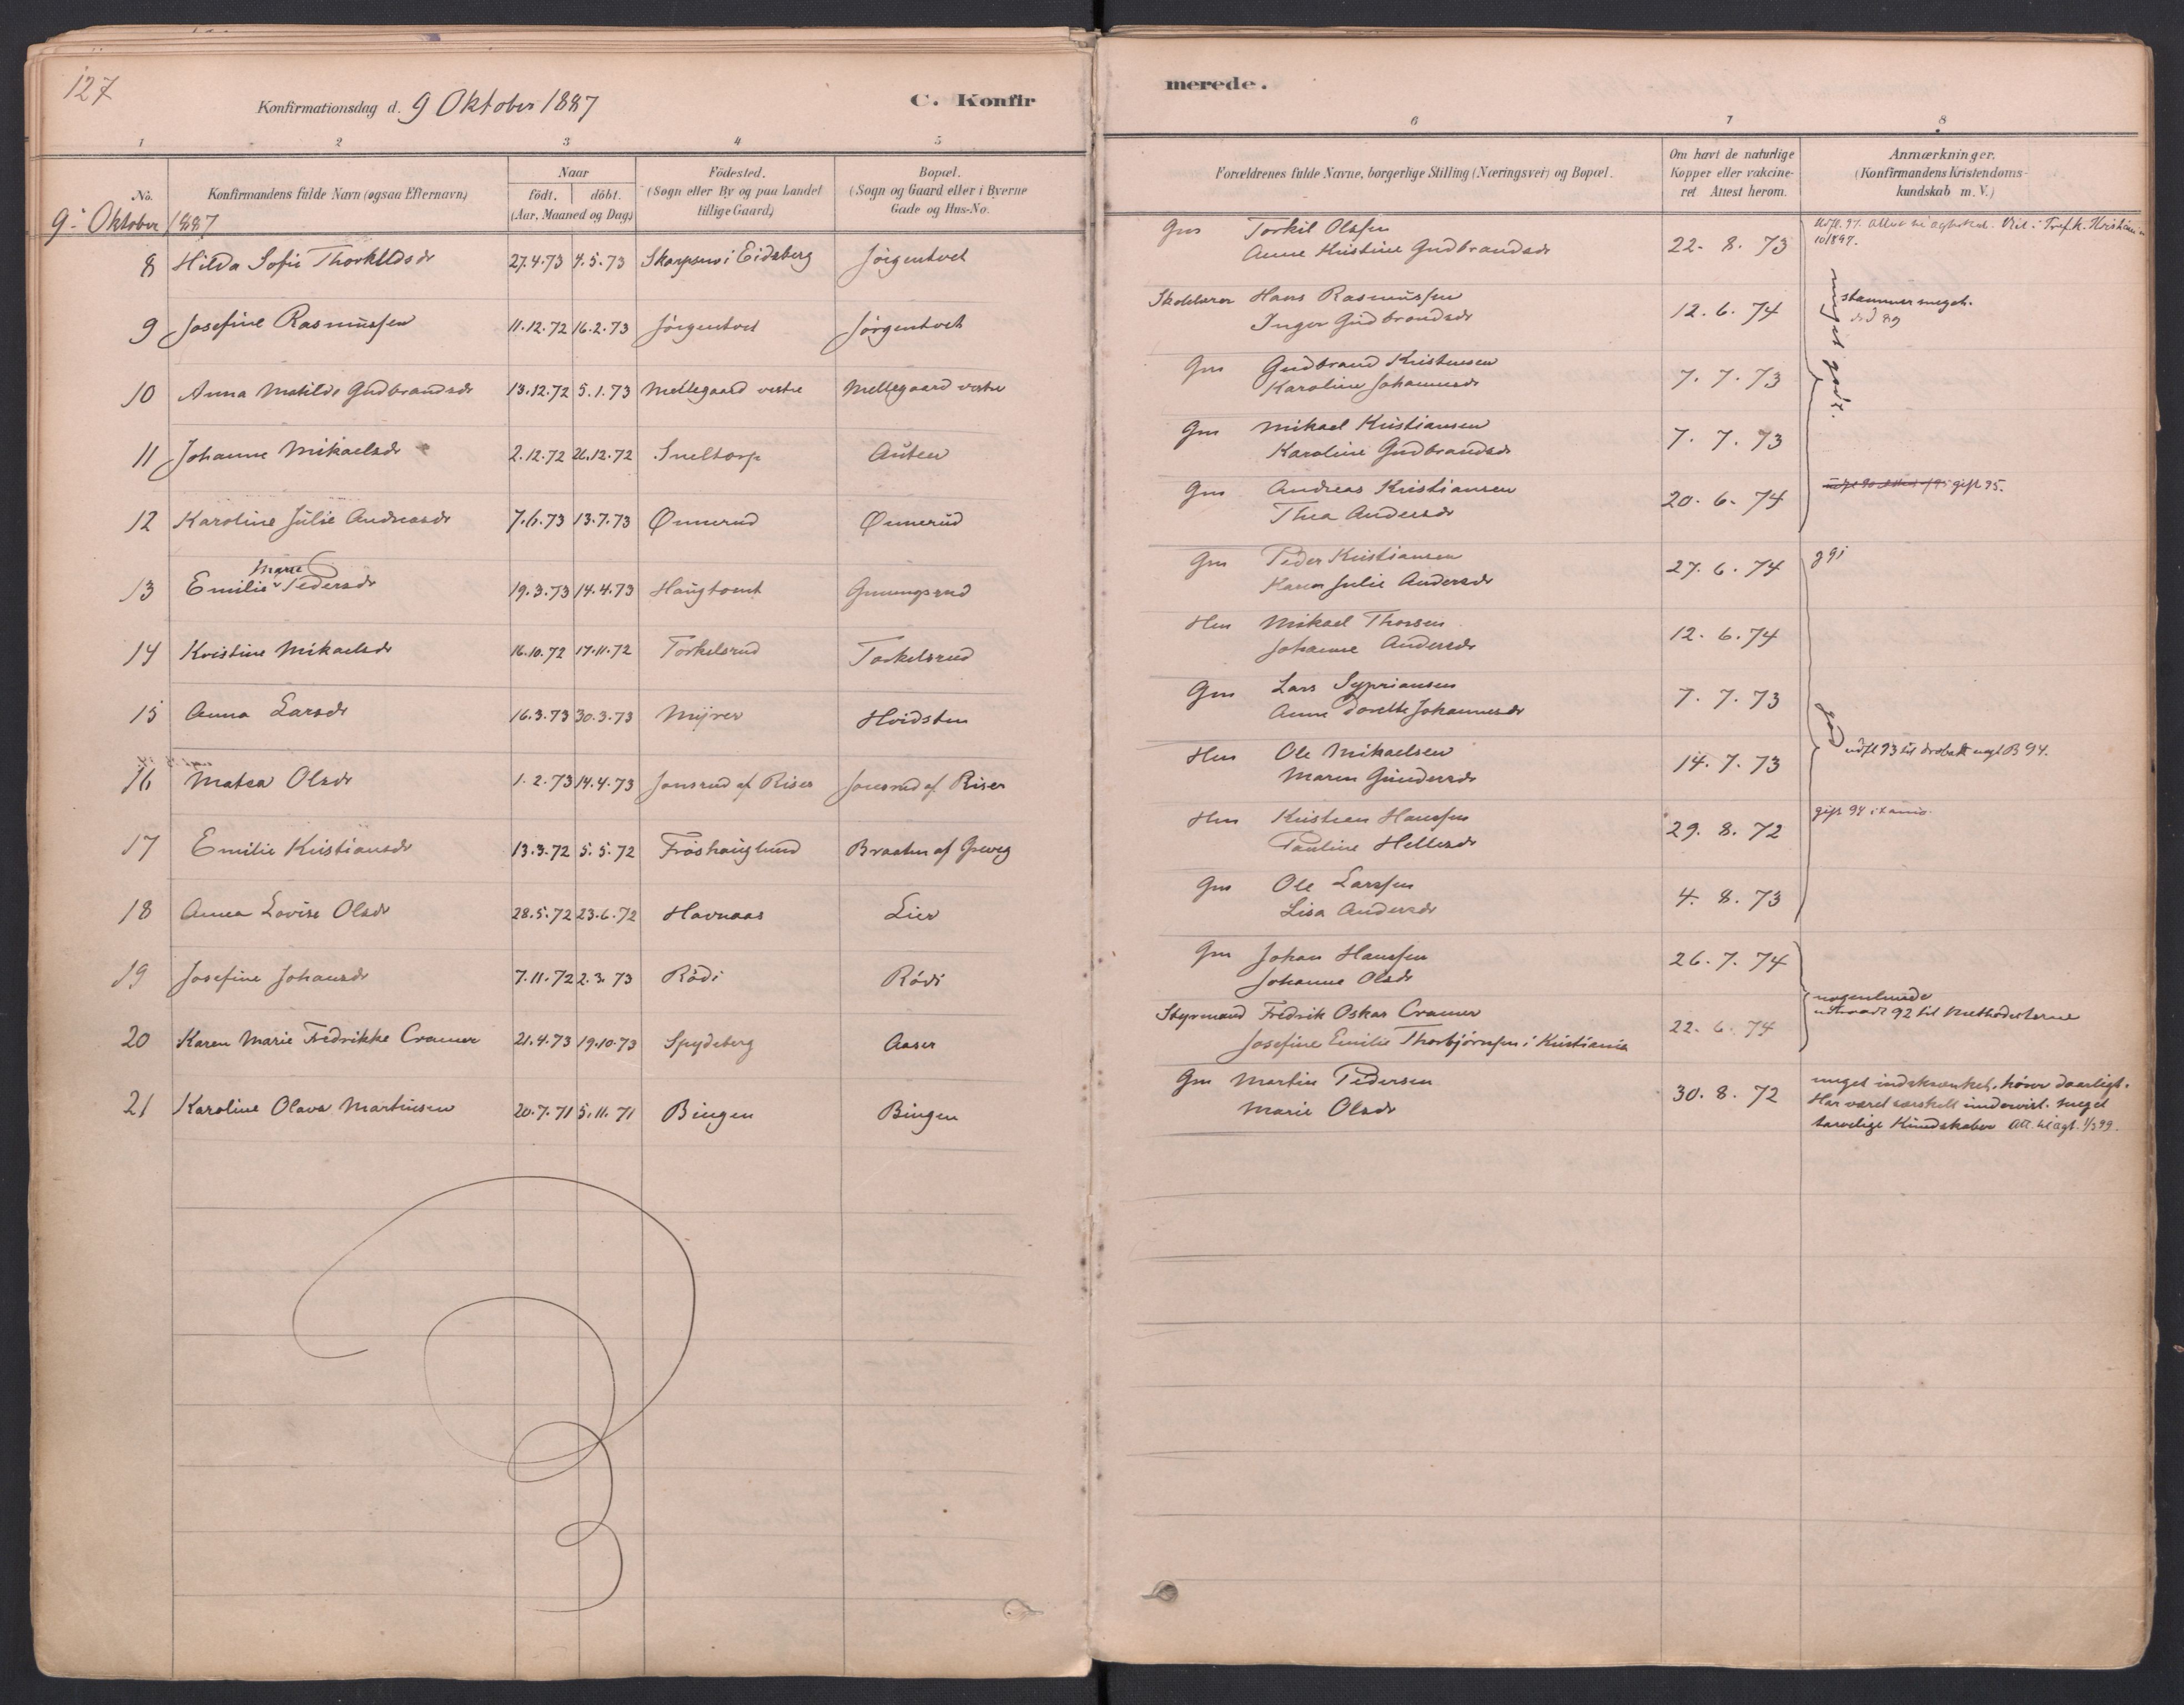 127
Konfirmationsdag d. 9 Oktober 1887
C. Konfir
merede.
1 2 3 4 5
6 7 8
No. Konfirmandens fulde Navn (ogsaa Efternavn)
Naar
födt. döbt.
(Aar, Maaned og Dag)
Födested.
(Sogn eller By og paa Landet
tillige Gaard)
Bopæl.
(Sogn og Gaard eller i Byerne
Gade og Hus-No.
Forældrenes fulde Navne, borgerlige Stilling (Næringsvei) og Bopæl.
Om havt de naturlige
Kopper eller vakcine-
ret Attest herom.
Anmærkninger.
(Konfirmandens Kristendoms-
kundskab m. V.)
9: Oktober 1887
8 Hilda Sofie Thorkildsdr 27.4.73 4.5.73 Skarpsno i Eidsberg Jörgentvet
Gm Torkil Olsen 22. 8. 73
Anne Kristine Gudbrandsdr
10/8 97.
9 Josefine Rasmussen 11.12.72 16.2.73 Jörgentvet Jörgentvet
Skolelærer Hans Rasmussen 12. 6. 74 stammer meget.
Inger Gudbrandsdr
meget godt.
10 Anna Matilde Gudbrandsdr 13.12.72 5.1.73 Mellegaard vestre Mellegaard vestre
Gm Gudbrand Kristensen 7. 7. 73
Karoline Johannesdr
11 Johanne Mikaelsdr 2.12.72 26.12.72 Sneltorp Auten
Gm Mikael Kristiansen 7. 7. 73
Karoline Gudbrandsdr
12 Karoline Julie Andreasdr 7.6.73 13.7.73 Ønnerud Ønnerud
Gm Andreas Kristiansen 20. 6. 74 gift 95.
Thea Andersdr
13 Emilie Marie Pedersdr 19.3.73 14.4.73 Haugtomt
Gm Peder Kristiansen 27. 6. 74
Karen Julie Andersdr
14 Kristine Mikaelsdr 16.10.72 17.11.72 Torkelsrud Torkelsrud
Hm Mikael Thorsen 12. 6. 74
Johanne Andersdr
15 Anna Larsdr 16.3.73 30.3.73 Myrer Hvidsten
Gm Lars Syprianses 7. 7. 73
Anne Dorette Johannesdr
god
16 Matea Olsdr 1.2.73 14.4.73 Jonsrud af Riser Jonsrud af Riser
Hm Ole Mikaelsen 14. 7. 73 udfl 93 til Drøbak
Maren Gundersdr
17 Emilie Kristiansdr 13.3.72 5.5.72 Fröshauglund Braaten af Greveg
Hm Kristian Hanssen 29. 8. 72
Pauline Hellesdr
18 Anna Lovise Olsdr 28.5.72 23.6.72 Havnaas Lier
Gm Ole Larssen 4. 8. 73
Lisa Andersdr
19 Josefine Johansdr 7.11.72 2.3.73 Rödi Rödi
Gm Johan Hanssen 26. 7. 74
Johanne Olsdr
nogenlunde
20 Karen Marie Fredrikke Cramer 21.4.73 19.10.73 Spydeberg Aaser
Styrmand Fredrik Oskar Cramer 22. 6. 74 udtraadt 92 til Methodisterne
Josefine Emilie Thorbjörnsen i Kristiania
21 Karoline Olava Martinsen 20.7.71 5.11.71 Bingen Bingen
Gm Martin Pedersen 30. 8. 72 meget indskrænket, hörer daarligt.
Marie Olsdr Har været særskilt undervist. Meget
tarvelige Kundskaber